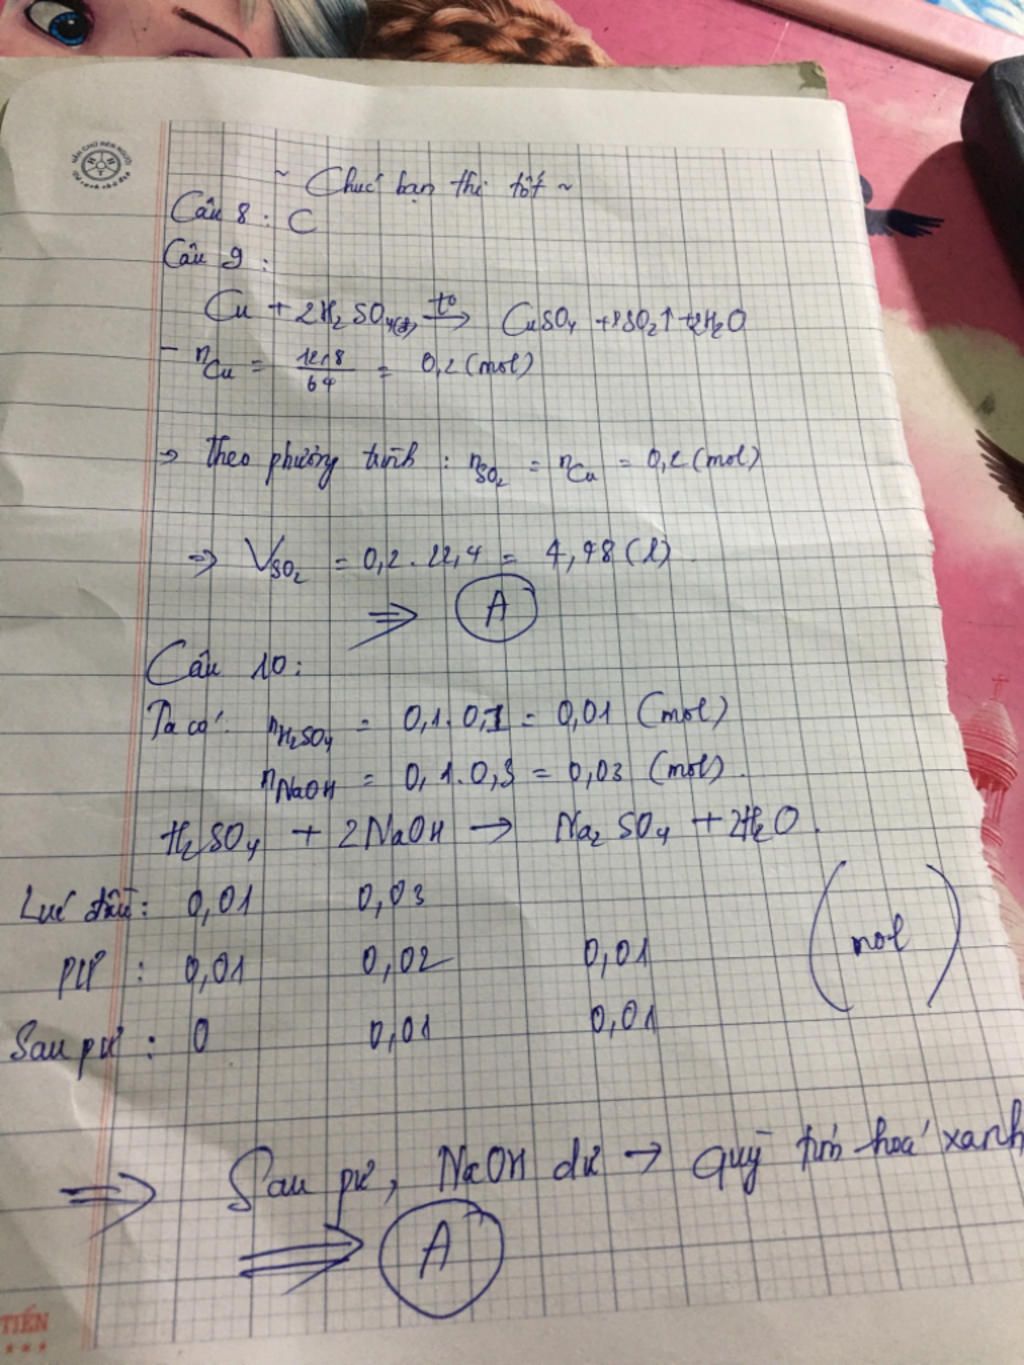 ~ Chúc bạn thi tốt ~
Câu 8 : C
Câu 9 :
Cu + 2H2SO4(đ) t° → CuSO4 + SO2↑ + 2H2O
- nCu = 12,8 / 64 = 0,2 (mol)
→ Theo phương trình : nSO2 = nCu = 0,2 (mol)
⇒ VSO2 = 0,2 . 22,4 = 4,48 (l)
⇒ A
Câu 10 :
Ta có : nH2SO4 = 0,1 . 0,1 = 0,01 (mol)
nNaOH = 0,1 . 0,3 = 0,03 (mol).
H2SO4 + 2NaOH → Na2SO4 + 2H2O.
Lúc đầu : 0,01 0,03
PƯ : 0,01 0,02 0,01 (mol)
Sau pư : 0 0,01 0,01
⇒ Sau pư, NaOH dư → quỳ tím hoá xanh
⇒ A
TIẾN